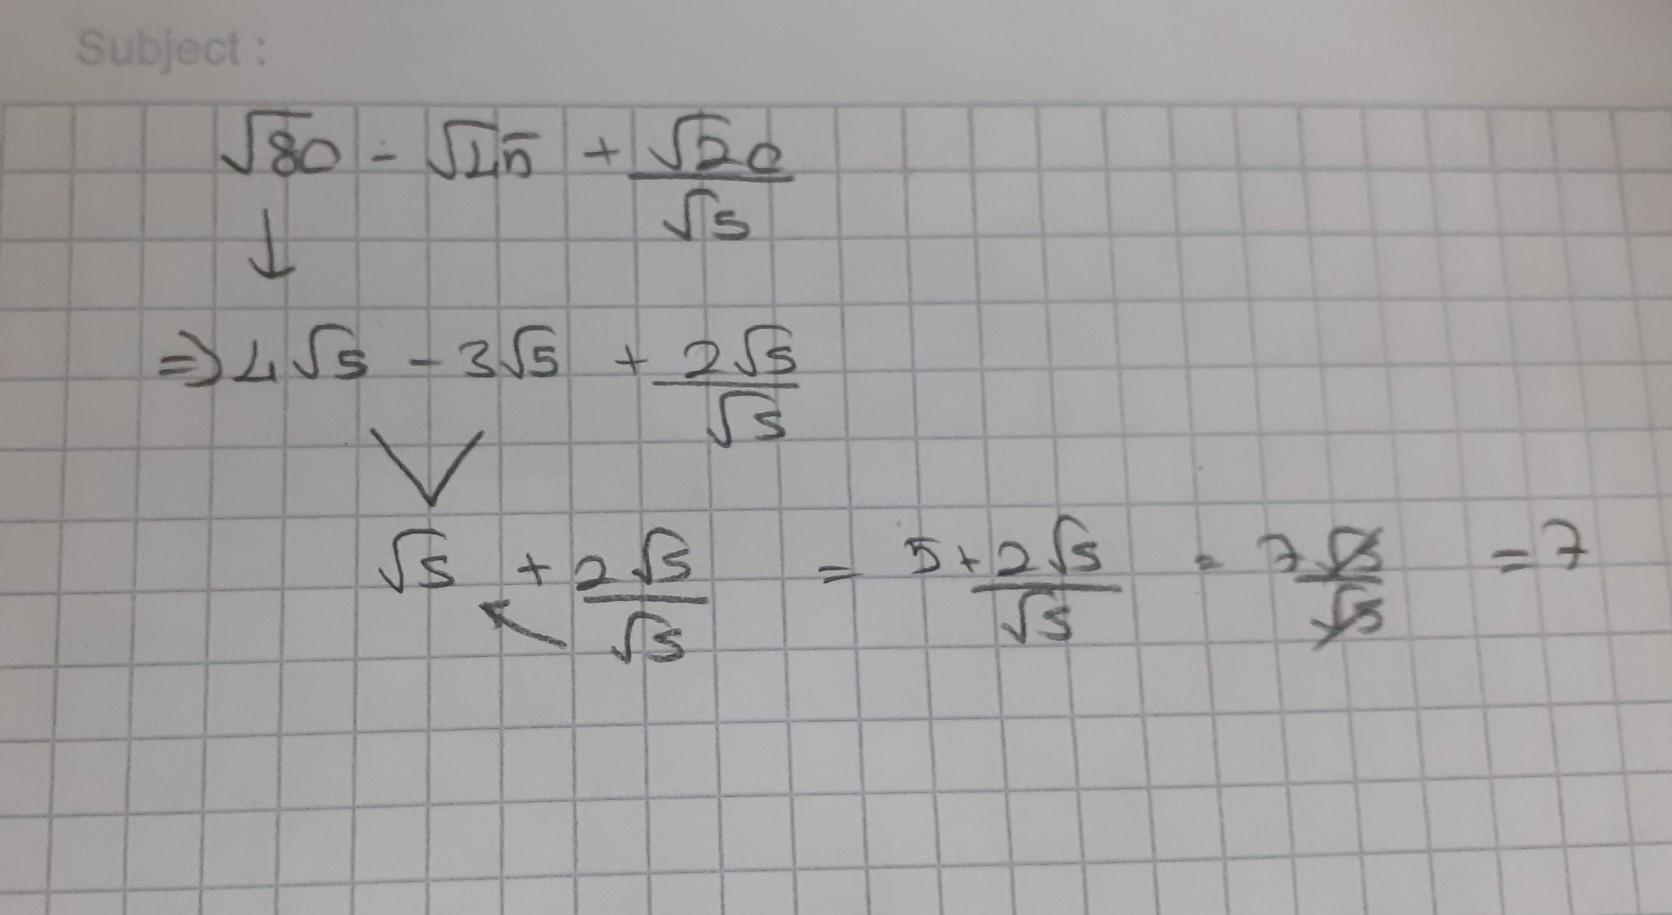 Subject :
√80 - √45 + √20/√5
↓
⇒ 4√5 - 3√5 + 2√5/√5
√5 + 2√5/√5 = 5+2√5/√5 = 7√5/√5 = 7